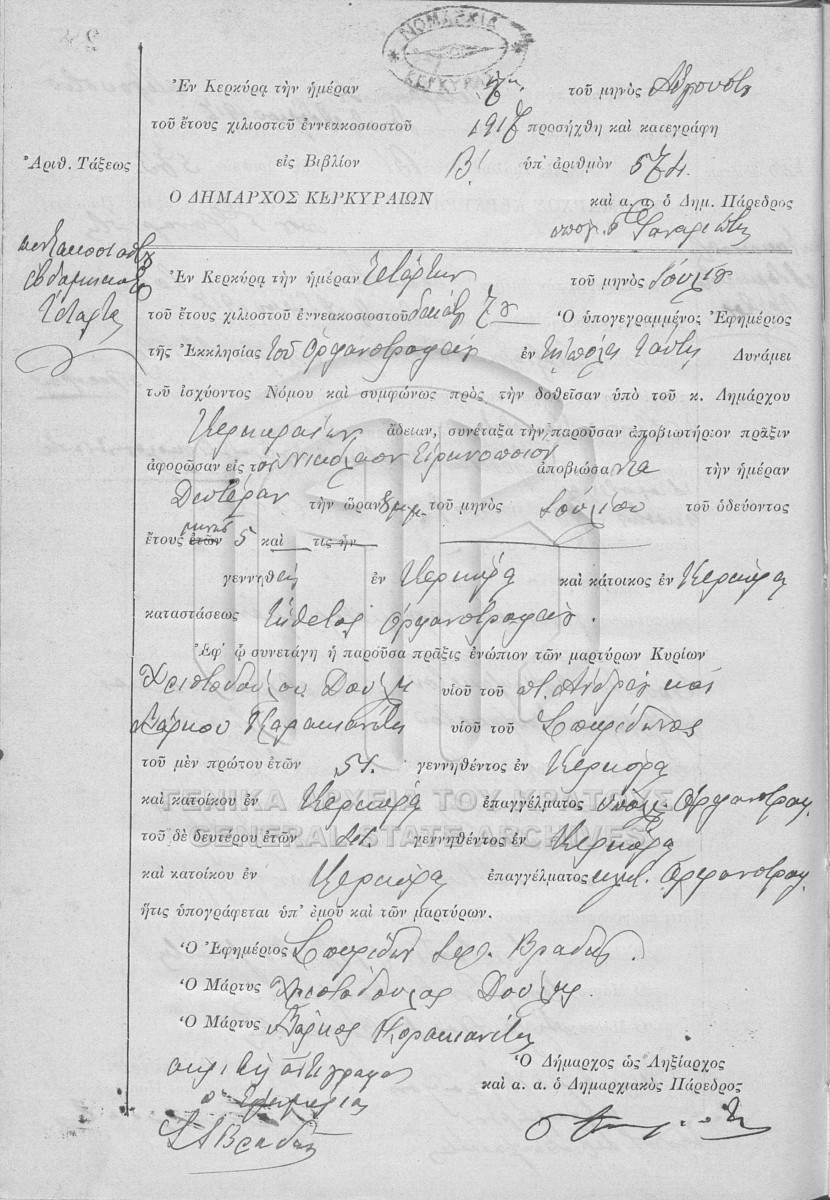 ΝΟΜΑΡΧΙΑ
ΚΕΡΚΥΡΑΣ
Ἐν Κερκύρᾳ τὴν ἡμέραν τοῦ μηνὸς Αὐγούστου
τοῦ ἔτους χιλιοστοῦ ἐννεακοσιοστοῦ 1917 προσήχθη καὶ κατεγράφη
Ἀριθ. Τάξεως εἰς Βιβλίον Β' ὑπ' ἀριθμὸν 574.
Ο ΔΗΜΑΡΧΟΣ ΚΕΡΚΥΡΑΙΩΝ καὶ α. α. ὁ Δημ. Πάρεδρος
πεντακοσιοστὸς
ἑβδομηκοστὸς
τέταρτος
Ἐν Κερκύρᾳ τὴν ἡμέραν Τετάρτην τοῦ μηνὸς Ἰουλίου
τοῦ ἔτους χιλιοστοῦ ἐννεακοσιοστοῦ δεκάτου 7ου Ὁ ὑπογεγραμμένος Ἐφημέριος
τῆς Ἐκκλησίας τοῦ Ὀρφανοτροφείου ἐν τῇ πόλει ταύτῃ Δυνάμει
τοῦ ἰσχύοντος Νόμου καὶ συμφώνως πρὸς τὴν δοθεῖσαν ὑπὸ τοῦ κ. Δημάρχου
Κερκυραίων ἄδειαν, συνέταξα τὴν παροῦσαν ἀποβιωτήριον πρᾶξιν
ἀφορῶσαν εἰς τὸν Νικόλαον Εἰρηνόποιον ἀποβιώσαντα τὴν ἡμέραν
Δευτέραν τὴν ὥραν 8 μ.μ. τοῦ μηνὸς Ἰουλίου τοῦ ὁδεύοντος
ἔτους ἐτῶν μηνῶν 5 καὶ τις ἦν
γεννηθεὶς ἐν Κερκύρᾳ καὶ κάτοικος ἐν Κερκύρᾳ
καταστάσεως ἔκθετος Ὀρφανοτροφείου.
Ἐφ' ᾧ συνετάγη ἡ παροῦσα πρᾶξις ἐνώπιον τῶν μαρτύρων Κυρίων
Χριστοδούλου Δούλη υἱοῦ τοῦ ποτ. Ἀνδρέου καὶ
Μάρκου Κορακιανίτη υἱοῦ τοῦ Σπυρίδωνος
τοῦ μὲν πρώτου ἐτῶν 51. γεννηθέντος ἐν Κερκύρᾳ
καὶ κατοίκου ἐν Κερκύρᾳ ἐπαγγέλματος ὑπάλ. Ὀρφανοτροφ.
τοῦ δὲ δευτέρου ἐτῶν γεννηθέντος ἐν Κερκύρᾳ
καὶ κατοίκου ἐν Κερκύρᾳ ἐπαγγέλματος Ὀρφανοτροφ.
ἥτις ὑπογράφεται ὑπ' ἐμοῦ καὶ τῶν μαρτύρων.
Ὁ Ἐφημέριος Σπυρίδων Βραδῆς.
Ὁ Μάρτυς Χριστόδουλος Δούλης.
Ὁ Μάρτυς Μάρκος Κορακιανίτης
ἀκριβὲς ἀντίγραφον
ὁ Ἐφημέριος
Βραδῆς
Ὁ Δήμαρχος ὡς Ληξίαρχος
καὶ α. α. ὁ Δημαρχιακὸς Πάρεδρος
ΓΕΝΙΚΑ ΑΡΧΕΙΑ ΤΟΥ ΚΡΑΤΟΥΣ
GENERAL STATE ARCHIVES